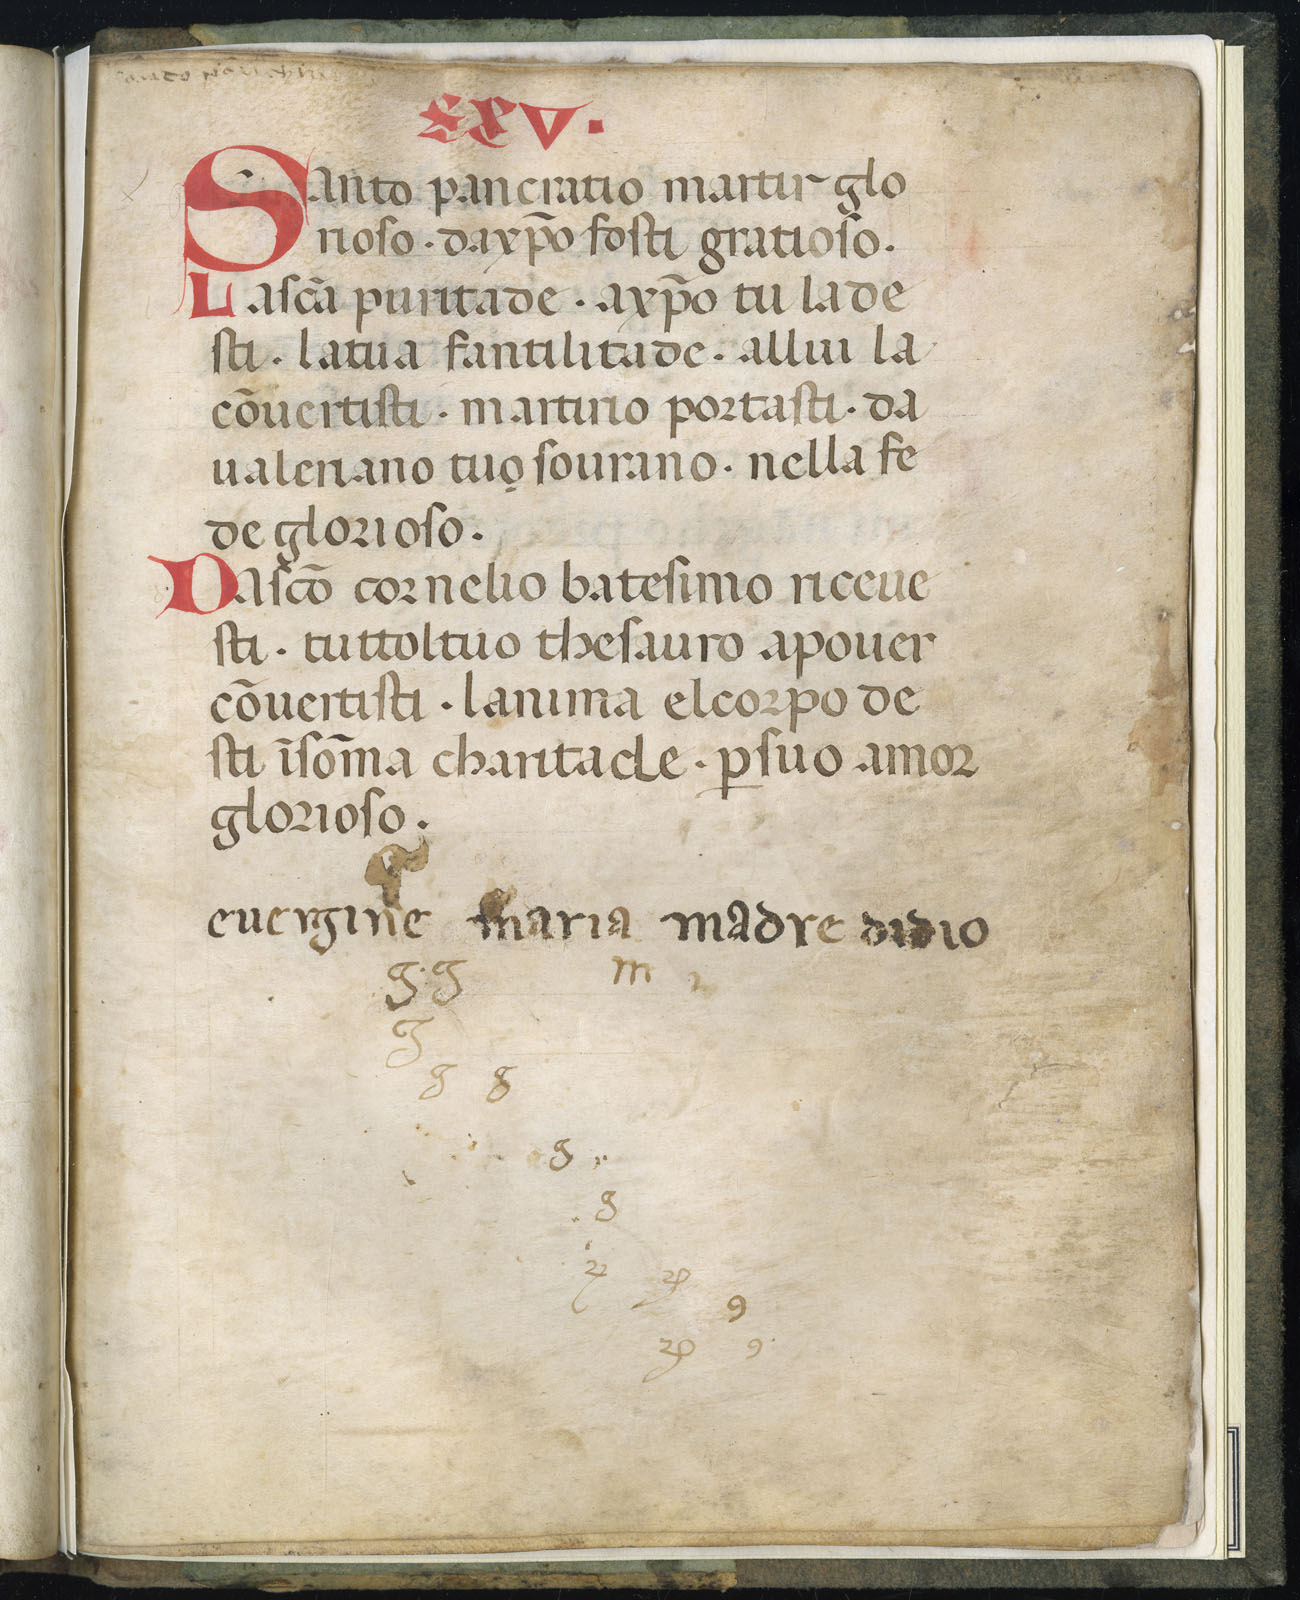 LXV.
Santo pancratio martir glo
rioso · daxp̄o fosti gratioso.
Lasc̄a puritade · axp̄o tu lade
sti · latua fantilitade · allui la
cōuertisti · martirio portasti · da
ualeriano tuo sourano · nella fe
de glorioso.
Dasc̄o cornelio batesimo riceue
sti · tuttoltuo thesauro apouer
cōuertisti · lanima elcorpo de
sti īsōma charitade · ꝑsuo amor
glorioso.
euergine maria madre didio
g g m
g
g g
g
g
9
9